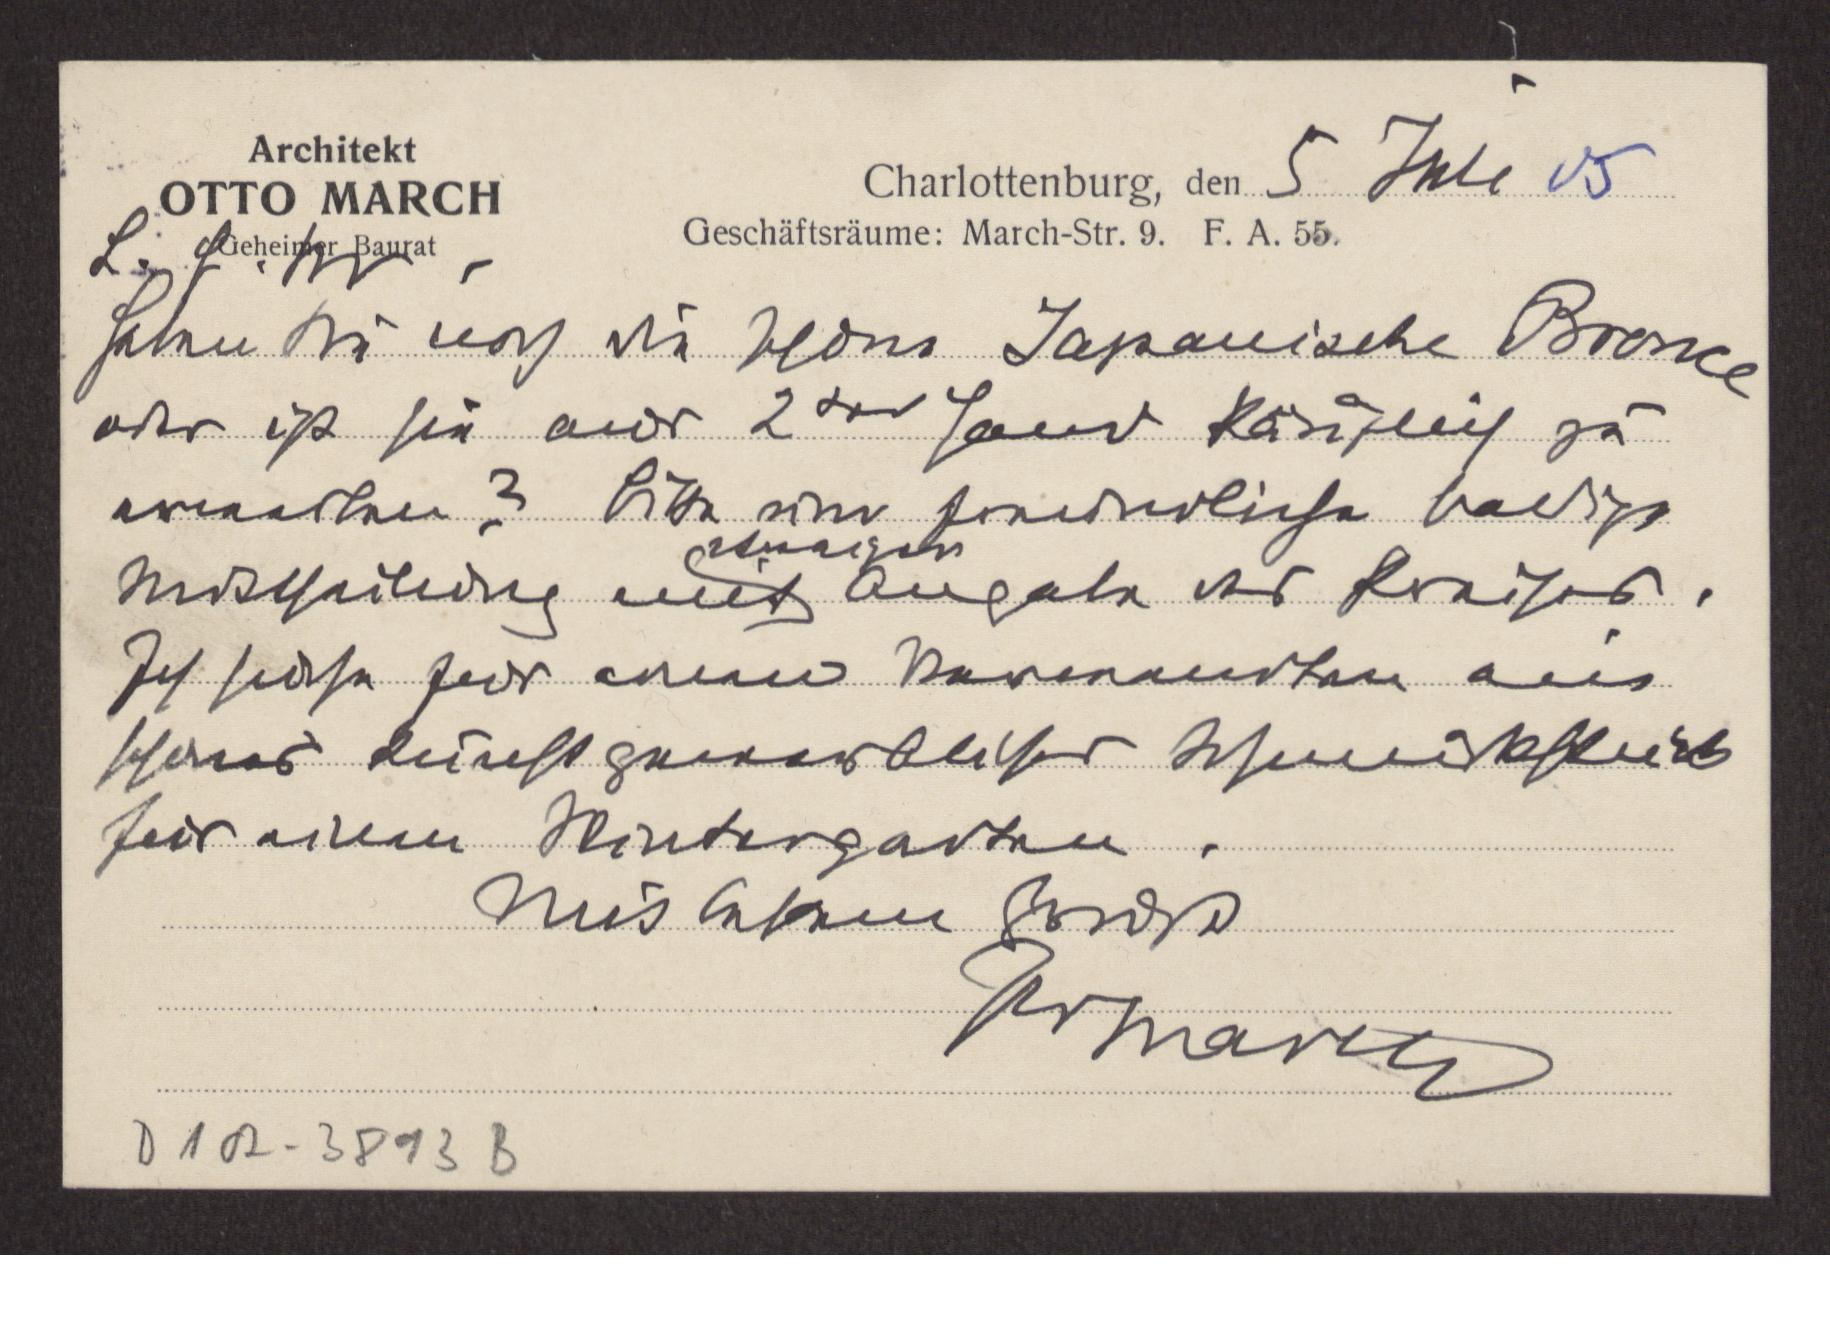 Architekt
OTTO MARCH
Geheimer Baurat
Charlottenburg, den 5 Juli 05
Geschäftsräume: March-Str. 9. F. A. 55.
L. H.
Haben Sie noch die schöne Japanische Bronce
oder ist sie aus 2ter Hand käuflich zu
erwerben? Bitte um freundliche baldige
Mittheilung mit etwaiger Angabe des Preises.
Ich suche für einen Verwandten ein
schönes kunstgewerbliches Schmuckstück
für einen Wintergarten.
Mit bestem Gruß
Ihr March
D 182-3893 B